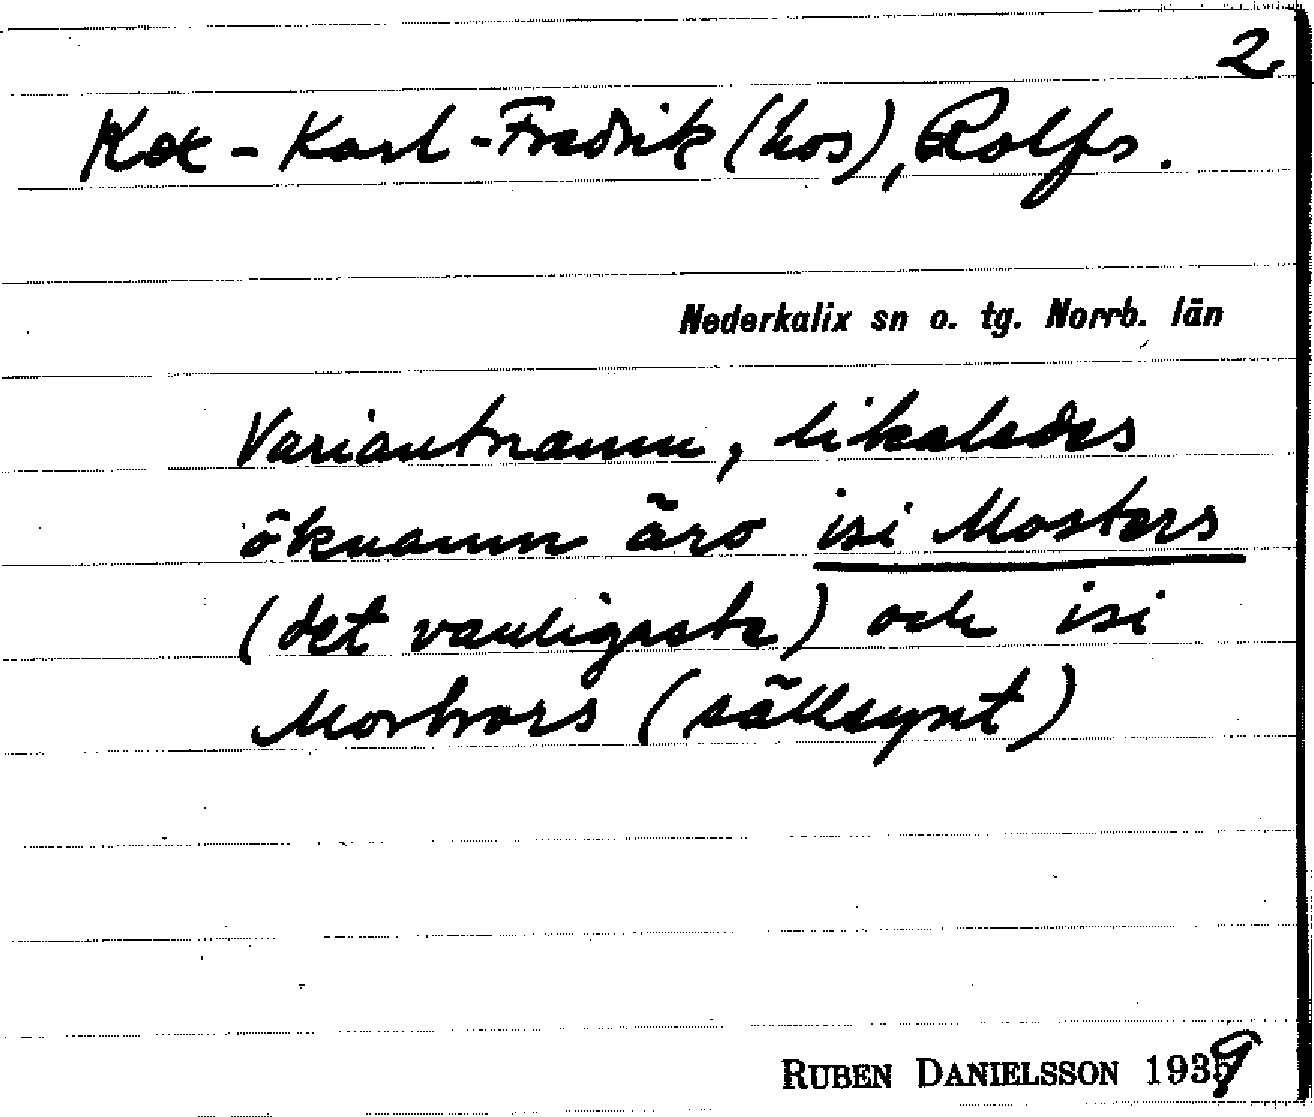 2
Kox-Karl-Fredrik (hos), Rolfs.
Nederkalix sn o. tg. Norrb. län
Variantnamn, likaledes
öknamn äro isi Mosters
(det vanligaste) och isi
(sällsynt)
RUBEN DANIELSSON 1939